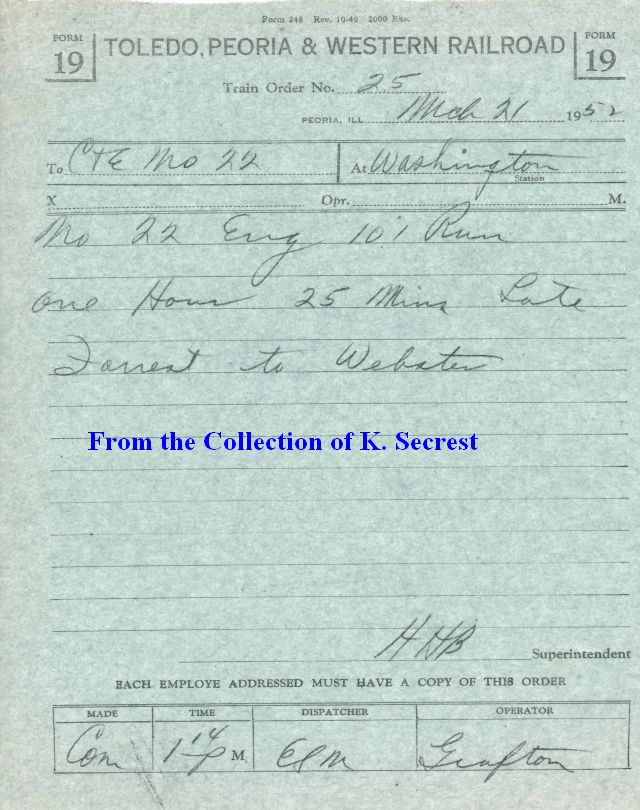 Form 248 Rev. 10-49 2000 Bks.
FORM 19 TOLEDO, PEORIA & WESTERN RAILROAD FORM 19
Train Order No. 25
PEORIA, ILL Mch 21 1952
To C+E No 22 At Washington
Station
X Opr. M.
No 22 Eng 101 Run
one Hour 25 Mins Late
Forrest to Webster
From the Collection of K. Secrest
HHB Superintendent
EACH EMPLOYE ADDRESSED MUST HAVE A COPY OF THIS ORDER
MADE TIME DISPATCHER OPERATOR
Com 1 14 P M ESM Grafton